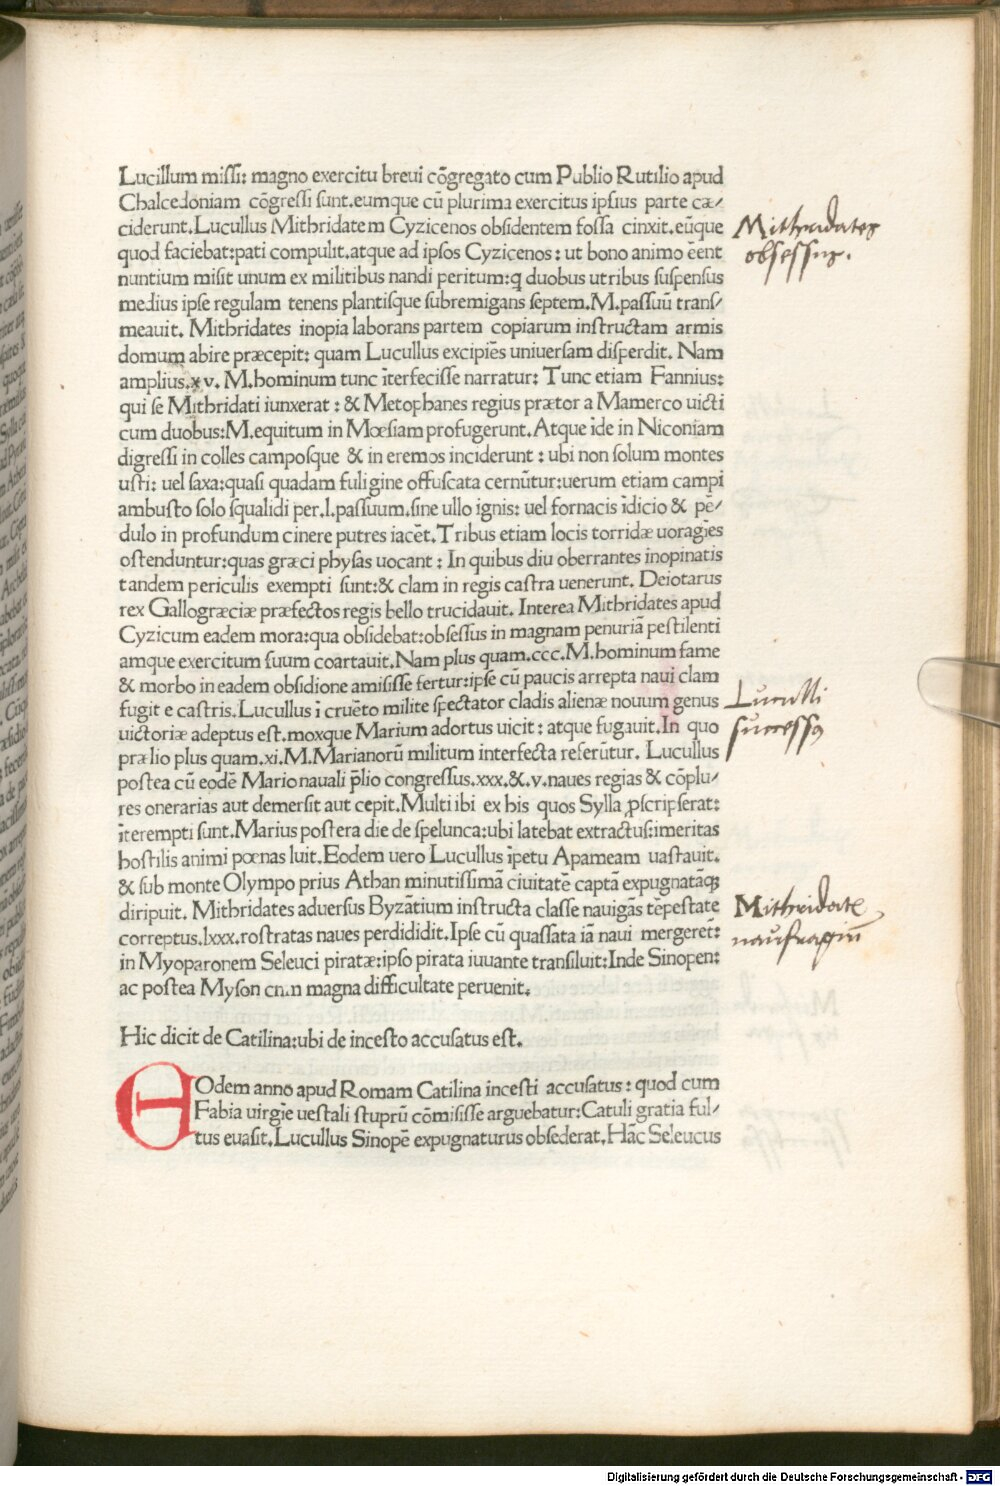 Lucillum missi: magno exercitu breui cõgregato cum Publio Rutilio apud
Chalcedoniam cõgressi sunt.eumque cũ plurima exercitus ipsius parte cæ/
ciderunt.Lucullus Mithridatem Cyzicenos obsidentem fossa cinxit.eũque
quod faciebat:pati compulit.atque ad ipsos Cyzicenos: ut bono animo eẽnt
nuntium misit unum ex militibus nandi peritum:q duobus utribus suspensus
medius ipse regulam tenens plantisque subremigans septem.M.passuũ trans/
meauit. Mithridates inopia laborans partem copiarum instructam armis
domum abire præcepit: quam Lucullus excipiẽs uniuersam disperdit. Nam
amplius.xv. M.hominum tunc ĩterfecisse narratur: Tunc etiam Fannius:
qui se Mithridati iunxerat : & Metophanes regius prætor a Mamerco uicti
cum duobus:M.equitum in Mœsiam profugerunt.Atque ĩde in Niconiam
digressi in colles camposque & in eremos inciderunt : ubi non solum montes
usti: uel saxa:quasi quadam fuligine offuscata cernũtur:uerum etiam campi
ambusto solo squalidi per.l.passuum.sine ullo ignis: uel fornacis ĩdicio & pẽ/
dulo in profundum cinere putres iacẽt.Tribus etiam locis torridæ uoragĩes
ostenduntur:quas græci physas uocant : In quibus diu oberrantes inopinatis
tandem periculis exempti sunt:& clam in regis castra uenerunt. Deiotarus
rex Gallogræciæ præfectos regis bello trucidauit. Interea Mithridates apud
Cyzicum eadem mora:qua obsidebat:obsessus in magnam penuriã pestilenti
amque exercitum suum coartauit.Nam plus quam.ccc.M.hominum fame
& morbo in eadem obsidione amisisse fertur:ipse cũ paucis arrepta naui clam
fugit e castris.Lucullus ĩ cruẽto milite spectator cladis alienæ nouum genus
uictoriæ adeptus est.moxque Marium adortus uicit: atque fugauit.In quo
prælio plus quam.xi.M.Marianorũ militum interfecta referũtur. Lucullus
postea cũ eodẽ Mario nauali p̃lio congressus.xxx.&.v.naues regias & cõplu/
res onerarias aut demersit aut cepit.Multi ibi ex his quos Sylla ꝓscripserat:
ĩterempti sunt.Marius postera die de spelunca:ubi latebat extractus:imeritas
hostilis animi pœnas luit.Eodem uero Lucullus ĩpetu Apameam uastauit.
& sub monte Olympo prius Athan minutissimã ciuitatẽ captã expugnatãqꝫ
diripuit. Mithridates aduersus Byzãtium instructa classe nauigãs tẽpestate
correptus.lxxx.rostratas naues perdididit.Ipse cũ quassata iã naui mergeret̃:
in Myoparonem Seleuci piratæ:ipso pirata iuuante transiluit:Inde Sinopen:
ac postea Myson magna difficultate peruenit.
Hic dicit de Catilina:ubi de incesto accusatus est.
EOdem anno apud Romam Catilina incesti accusatus : quod cum
Fabia uirgĩe uestali stuprũ cõmisisse arguebatur:Catuli gratia ful/
tus euasit.Lucullus Sinopẽ expugnaturus obsederat.Hãc Seleucus
Mithridates
obsessus.
Luculli
successus
Mithridate
naufragiũ
Digitalisierung gefördert durch die Deutsche Forschungsgemeinschaft - DFG